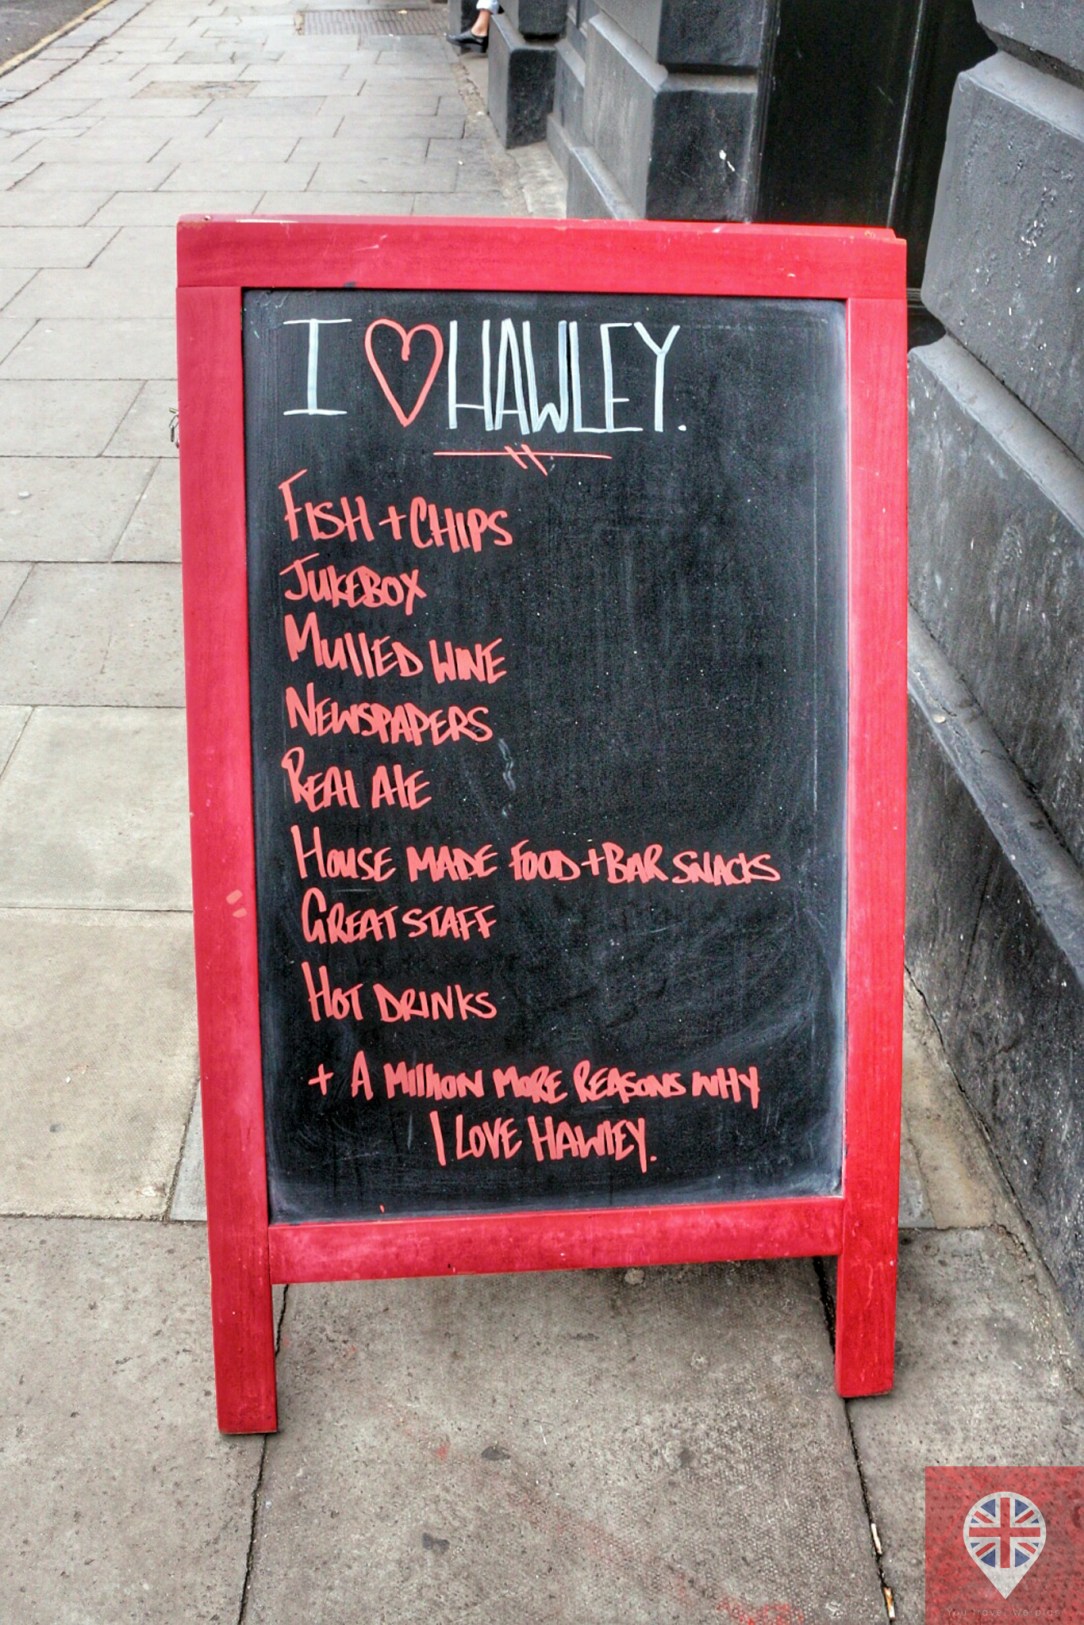 I ♡ HAWLEY.
FISH + CHIPS
JUKEBOX
MUllED WINE
NEWSPAPERS
REAl AlE
HOUSE MADE FOOD + BAR SNACKS
GREAT STAFF
HOT DRINKS
+ A MIllION MORE REASONS WHY
I LOVE HAWlEY.